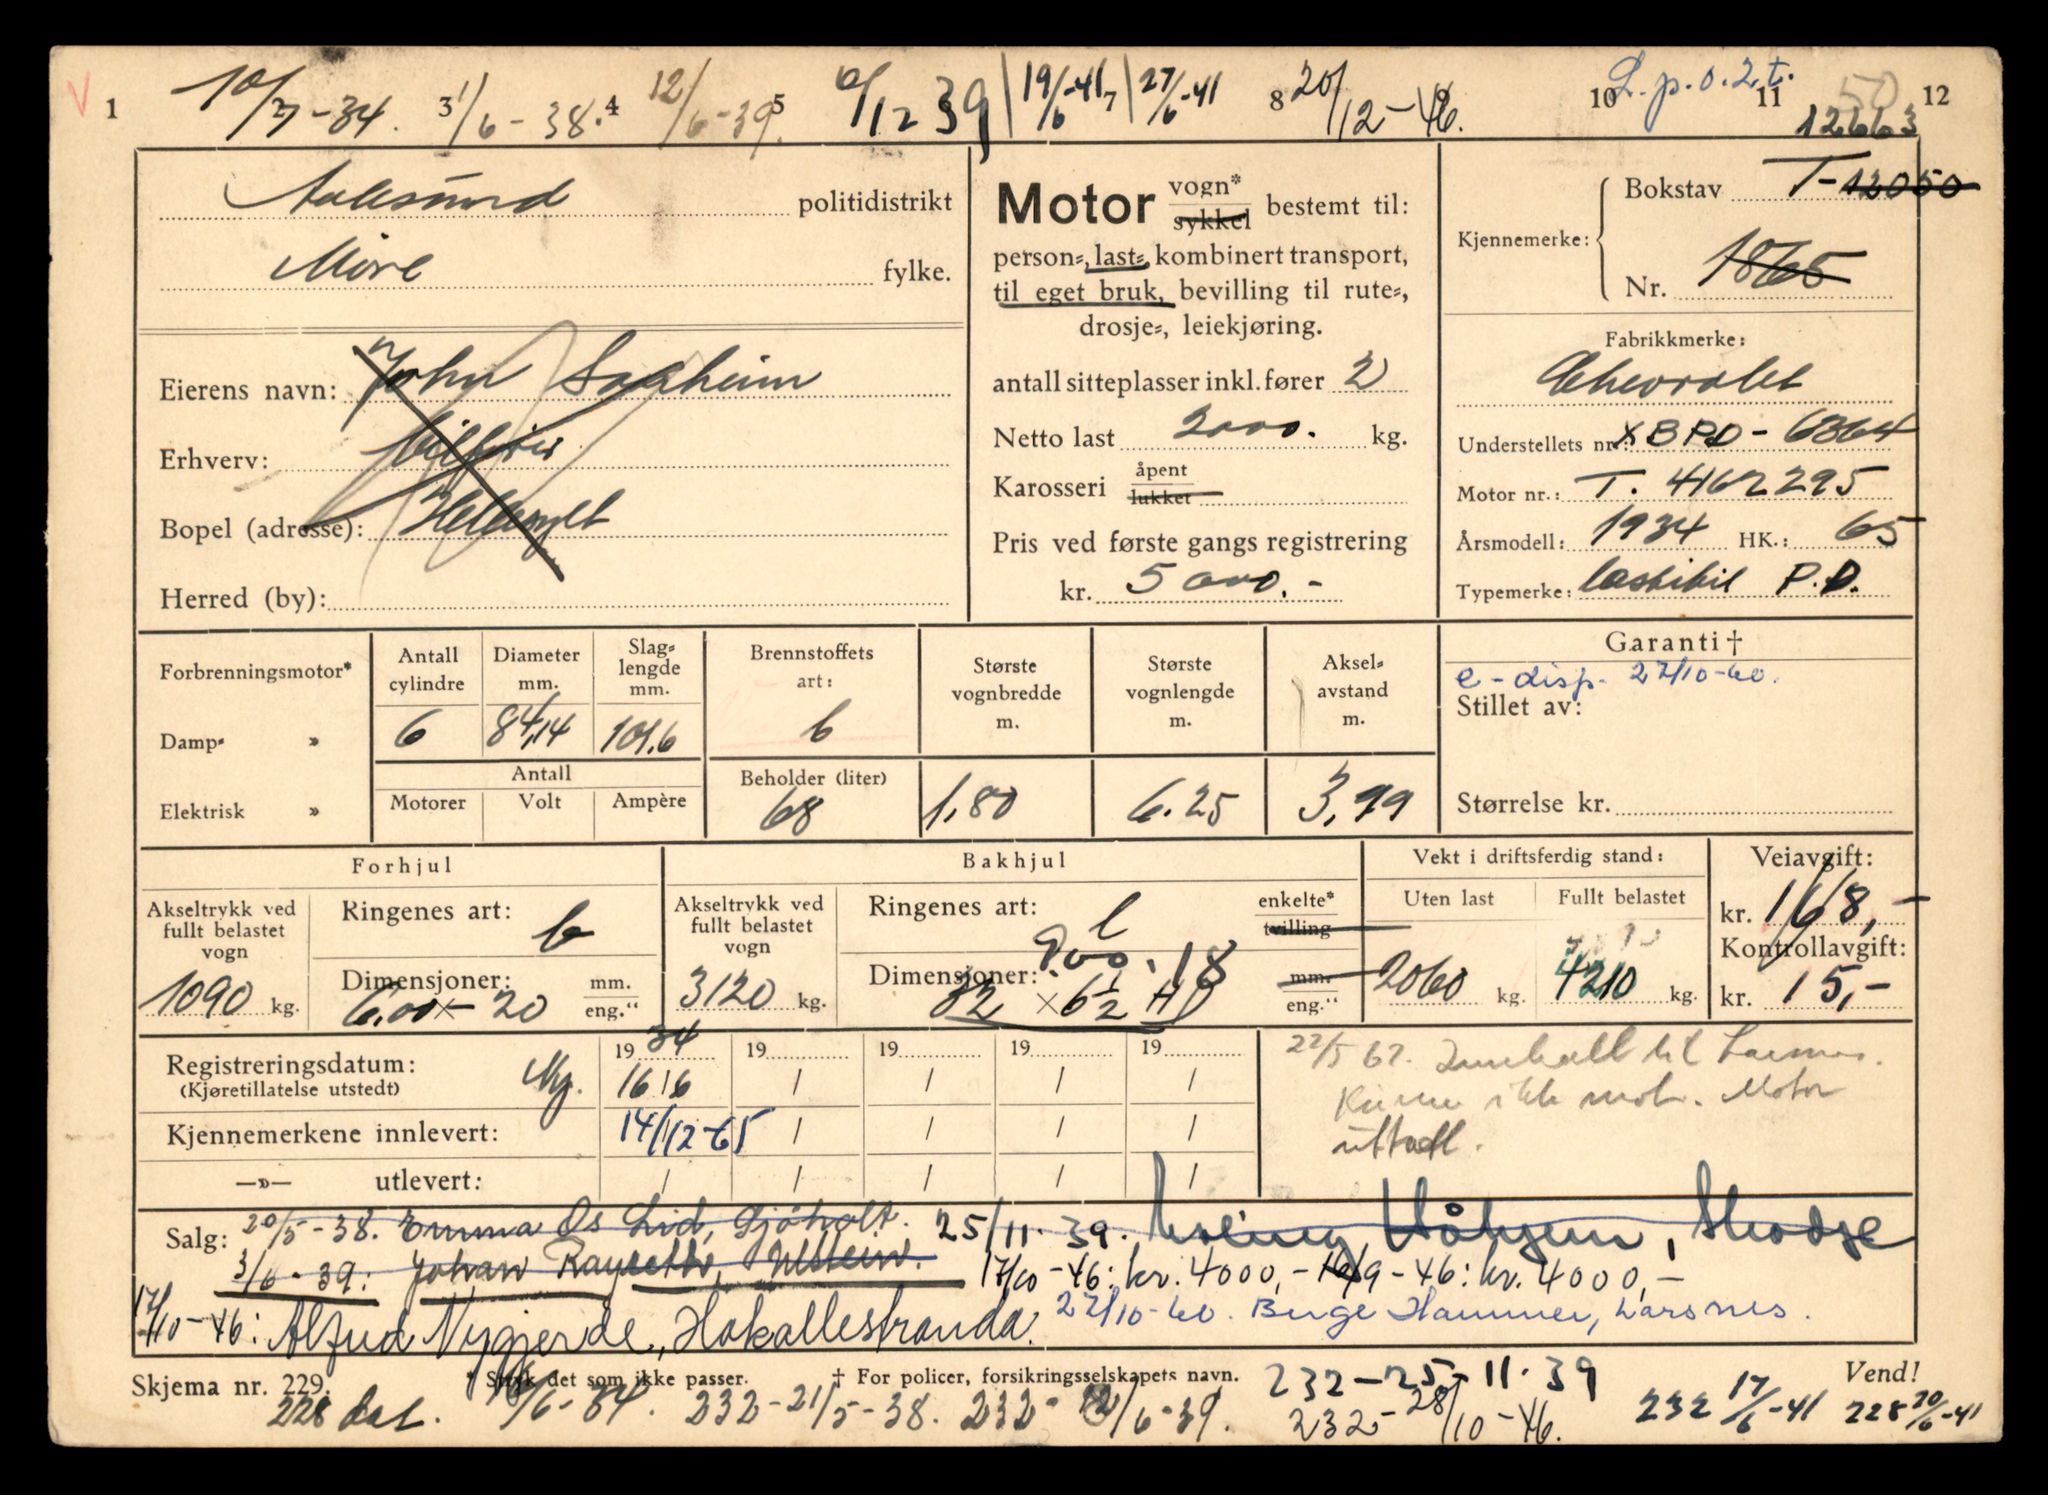 1 10/7-34. 3 1/6-38. 4 12/6-39. 5 9/12 39 19/6-41 7 27/6-41 8 20/12-46. 10 L.p.o.2t. 11 50 12
12663
Aalesund politidistrikt
Møre fylke.
Eierens navn: John
Erhverv:
Bopel (adresse): Hellesylt
Herred (by):
Motor vogn* sykkel bestemt til:
person-, last-, kombinert transport,
til eget bruk, bevilling til rute-,
drosje-, leiekjøring.
antall sitteplasser inkl. fører 2
Netto last 2000. kg.
Karosseri åpent lukket
Pris ved første gangs registrering
kr. 5000.-
Kjennemerke: Bokstav T-12050
Nr. 1865
Fabrikkmerke:
Chevrolet
Understellets nr.: XBPD-6364
Motor nr.: T. 4162295
Årsmodell: 1934 HK.: 65
Typemerke: lastebil P.D.
Forbrenningsmotor*
Damp- »
Elektrisk »
Antall cylindre 6
Diameter mm. 84,14
Slaglengde mm. 101,6
Antall
Motorer Volt Ampère
Brennstoffets art: b
Beholder (liter) 68
Største vognbredde m. 1,80
Største vognlengde m. 6.25
Akselavstand m. 3,99
Garanti †
e-disp. 27/10-60.
Stillet av:
Størrelse kr.
Forhjul
Akseltrykk ved fullt belastet vogn 1090 kg.
Ringenes art: l
Dimensjoner: 6.00 × 20 mm. eng."
Bakhjul
Akseltrykk ved fullt belastet vogn 3120 kg.
Ringenes art: l enkelte* tvilling
900.18
Dimensjoner: 32 × 6½ HD mm. eng."
Vekt i driftsferdig stand:
Uten last 2060 kg.
Fullt belastet 4210 kg.
Veiavgift:
kr. 168,-
Kontrollavgift:
kr. 15,-
Registreringsdatum: Ny. 19 34 19 19 19 19
(Kjøretillatelse utstedt) 16/6 / / / /
Kjennemerkene innlevert: 14/12-65 / / / /
—»— utlevert: / / / / /
22/5 62. Innkalt til Larsnes.
Kunne ikke møte. Motor
uttatt.
Salg: 20/5-38. Emma Os Lid, Sjøholt. 25/11.39. Håhjem, Skodje
3/6-39: Johan Ulstein. 17/10-46: kr. 4000,- 16/9-46: kr. 4000,-
17/10-46: Alfred Nygjerde, Hakallestranda. 27/10-60. Birge Hammer, Larsnes.
Skjema nr. 229. * Stryk det som ikke passer. † For policer, forsikringsselskapets navn. Vend!
228 dat. 16/6-34. 232-21/5-38. 232-12/6-39. 232-25-11.39
232-28/10-46. 232 17/6-41 228 20/6-41